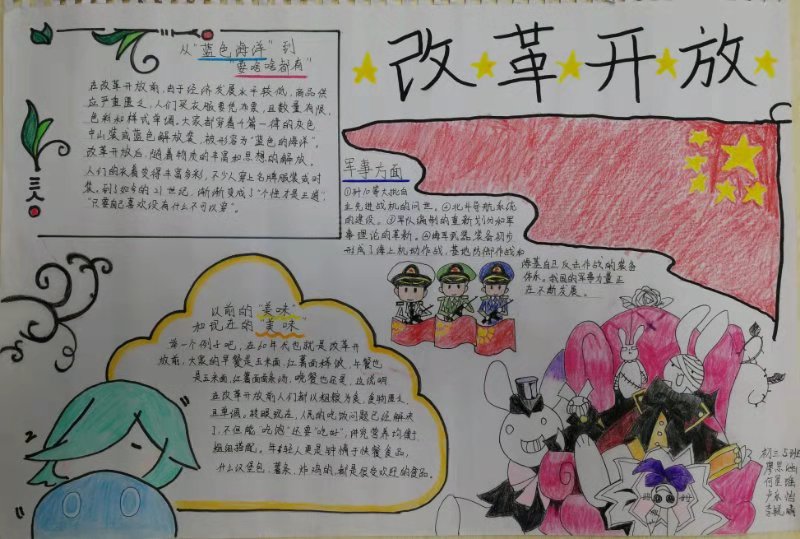 改革开放
从“蓝色海洋”到
“要啥啥都有”
在改革开放前,由于经济发展水平较低,商品供
应严重匮乏,人们买衣服要凭布票,且数量有限,
色彩和样式单调。大家都穿着千篇一律的灰色
中山装或蓝色解放装,被形容为“蓝色的海洋”。
改革开放后,随着物质的丰富和思想的解放,
人们的衣着变得丰富多彩,不少人穿上名牌服装或时
装,到了如今的21世纪,渐渐变成了“个性才是王道”,
“只要自己喜欢没有什么不可以穿”。
军事方面
①歼10等大批自
主先进战机的问世。②北斗导航系统
的建设。③军队编制的重新划分和军
事理论的革新。④海军武器装备初步
形成了海上机动作战,基地防御作战和
海基自卫反击作战的装备
体系。我国的军事力量正
在不断发展。
以前的“美味”
和现在的“美味”
举一个例子吧,在60年代也就是改革开
放前,大家的早餐是玉米面,红薯面稀饭,午餐也
是玉米面,红薯面面条汤,晚餐也还是,这说明
在改革开放前人们都以粗粮为食,食物匮乏
且单调。转眼现在,人民的吃饭问题已经解决
了,不但能“吃饱”还要“吃好”,讲究营养均衡
粗细搭配。年轻人更是钟情于快餐食品,
什么汉堡包、薯条、炸鸡的,都是很受欢迎的食品。
初三5班
李毓